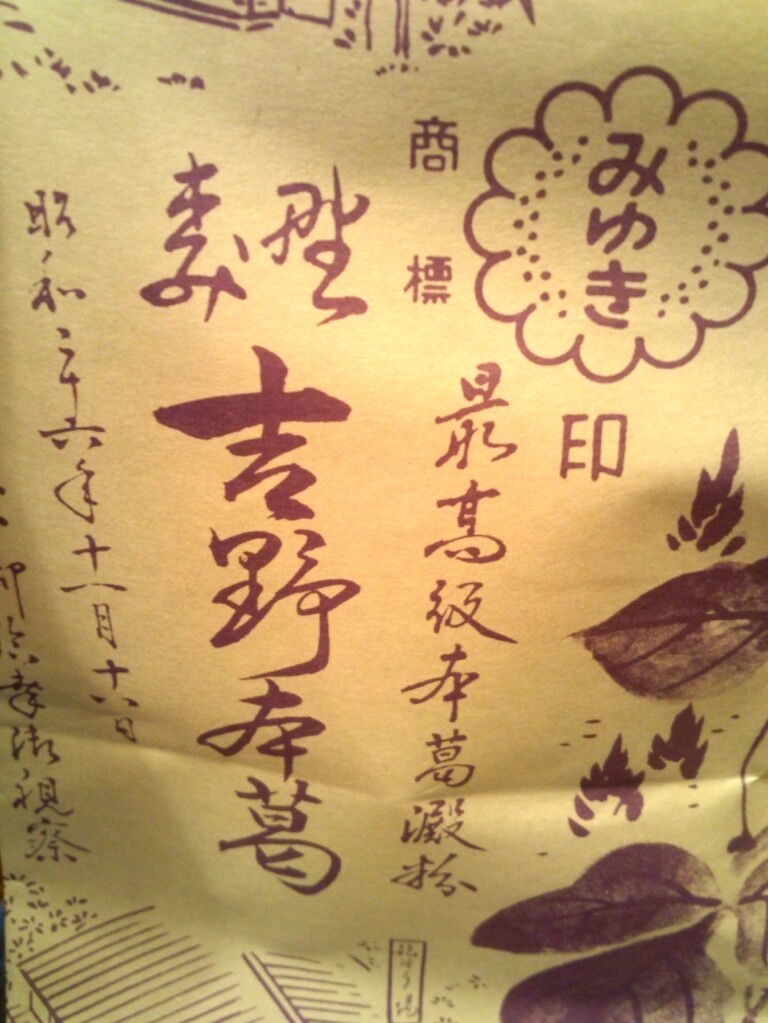 みゆき
印
商標
最高級本葛澱粉
吉野本葛
昭和二十六年十一月十六日
幸御視察